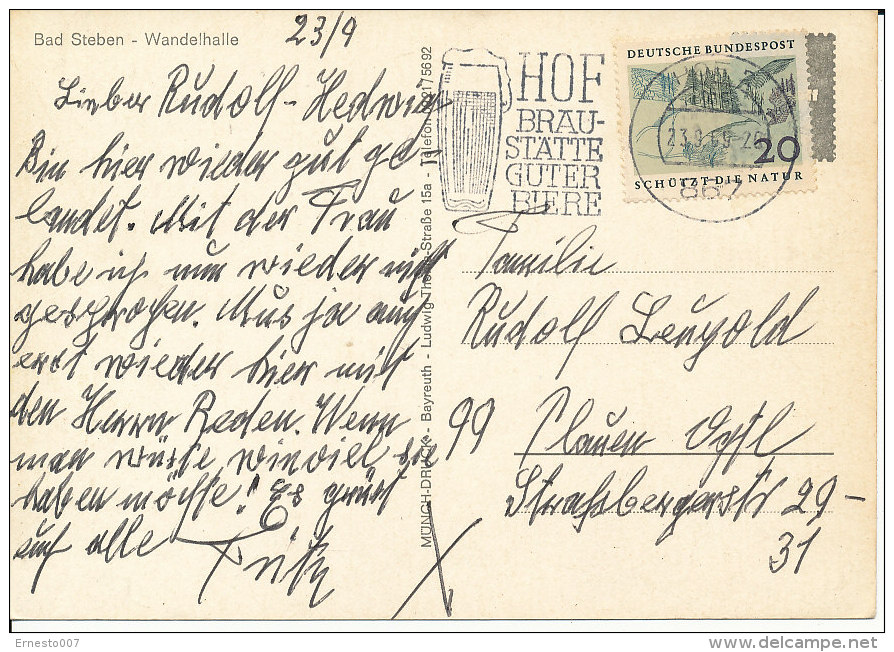 Bad Steben - Wandelhalle
23/9
Lieber Rudolf - Hedwig
Bin hier wieder gut ge-
landet. Mit der Frau
habe ich nun wieder nicht
gesprochen. Mus ja auch
erst wieder hier mit
den Herrn Reden. Wenn
man wüste wieviel sie
haben möchte! Es grüst
euch alle Fritz
MÜNCH-DRUCK - Bayreuth - Ludwig-Thoma-Straße 15a - Telefon 0921/75692
HOF
BRAU-
STÄTTE
GUTER
BIERE
DEUTSCHE BUNDESPOST
23.9.69-20
20
SCHÜTZT DIE NATUR
867
Familie
Rudolf Leupold
99 Plauen Vogtl
Straßbergerstr 29-
31
Ernesto007
www.delcampe.net